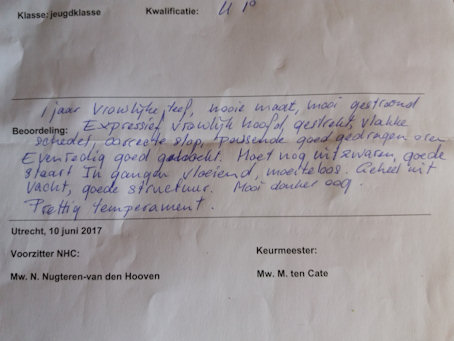 Klasse: jeugdklasse Kwalificatie: U 1°
1 jaar vrouwlijke teef, mooie maat, mooi gestroomd
Beoordeling: Expressief vrouwlijk hoofd, gestrekt, vlakke
schedel, correcte stop, passende goed gedragen oren
Evenredig goed gehoekt. Moet nog uitzwaren, goede
staart In gangen vloeiend, moeiteloos. Geheel uit
vacht, goede structuur. Mooi donker oog.
Prettig temperament.
Utrecht, 10 juni 2017
Voorzitter NHC: Keurmeester:
Mw. N. Nugteren-van den Hooven Mw. M. ten Cate